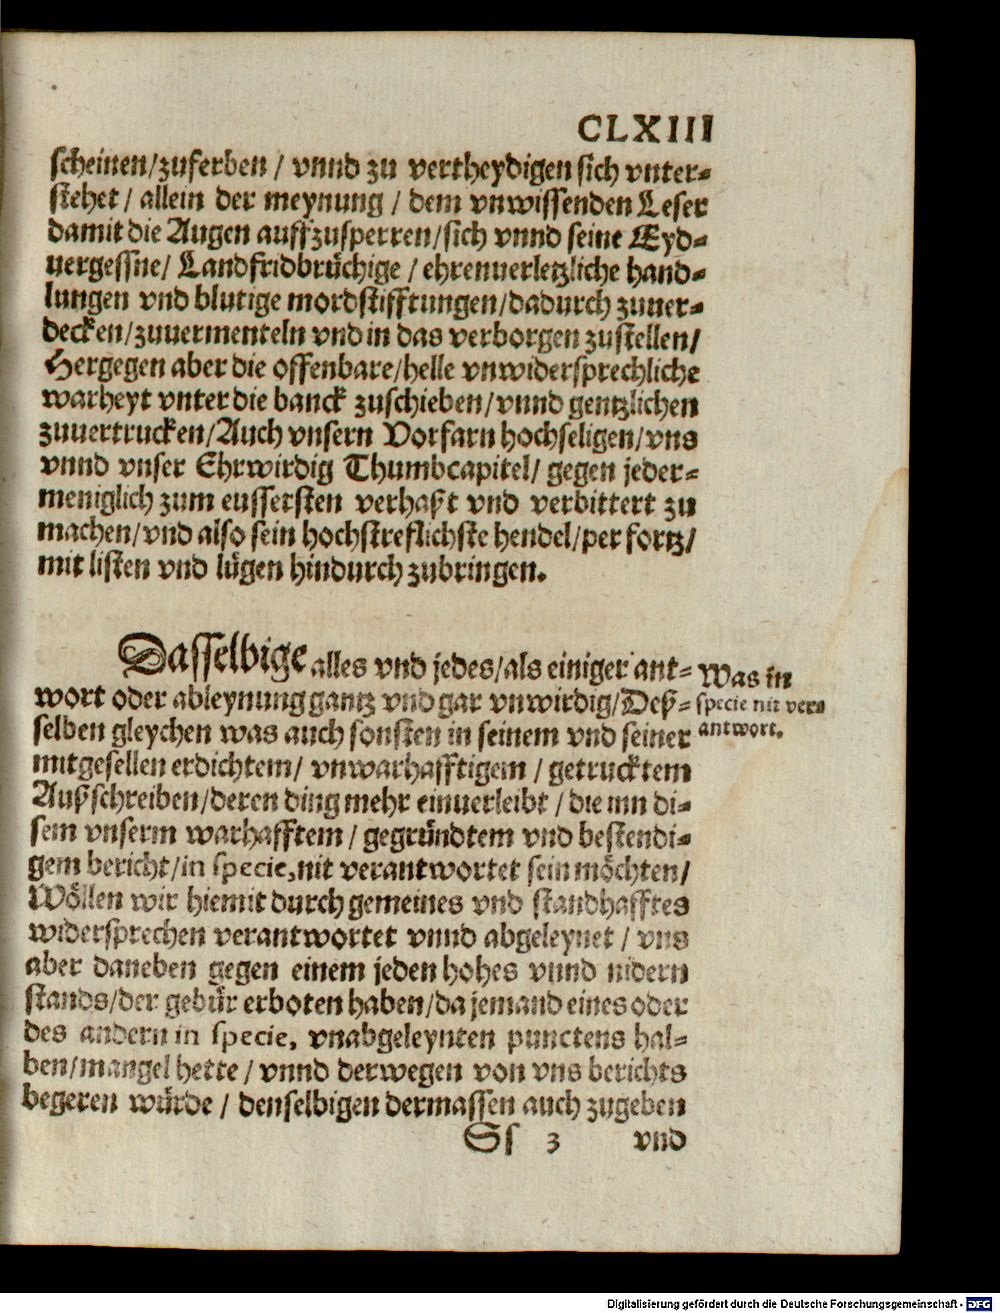 CLXIII
scheinen/zuferben / vnnd zu vertheydigen sich vnter-
stehet / allein der meynung / dem vnwissenden Leser
damit die Augen auffzusperren/sich vnnd seine Eyd-
uergessne/ Landfridbrüchige / ehrenuerletzliche hand-
lungen vnd blutige mordstifftungen/dadurch zuuer-
decken/zuuermenteln vnd in das verborgen zustellen/
Hergegen aber die offenbare/helle vnwidersprechliche
warheyt vnter die banck zuschieben/vnnd gentzlichen
zuuertrucken/Auch vnsern Vorfarn hochseligen/vns
vnnd vnser Ehrwirdig Thumbcapitel/ gegen jeder-
meniglich zum eussersten verhaßt vnd verbittert zu
machen/vnd also sein hochstreflichste hendel/per fortz/
mit listen vnd lügen hindurch zubringen.
Dasselbige alles vnd jedes/als einiger ant-
wort oder ableynung gantz vnd gar vnwirdig/Deß-
selben gleychen was auch sonsten in seinem vnd seiner
mitgesellen erdichtem/ vnwarhafftigem / getrucktem
Außschreiben/deren ding mehr einuerleibt / die inn di-
sem vnserm warhafftem / gegründtem vnd bestendi-
gem bericht/in specie, nit verantwortet sein möchten/
Wöllen wir hiemit durch gemeines vnd standhafftes
widersprechen verantwortet vnnd abgeleynet / vns
aber daneben gegen einem jeden hohes vnnd nidern
stands/der gebür erboten haben/da jemand eines oder
des andern in specie, vnabgeleynten punctens hal-
ben/mangel hette / vnnd derwegen von vns berichts
begeren würde / denselbigen dermassen auch zugeben
Was in
specie nit ver-
antwort.
Ss 3 vnd
Digitalisierung gefördert durch die Deutsche Forschungsgemeinschaft - DFG